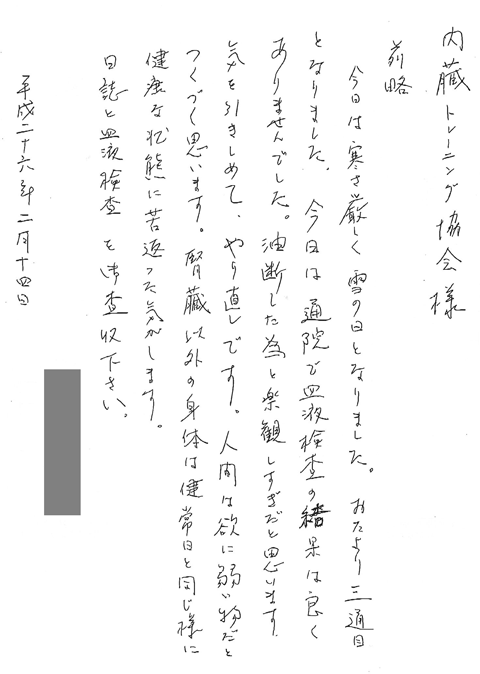 内臓トレーニング協会様
前略
今日は寒さ厳しく雪の日となりました。おたより三通目
となりました。今日は通院で血液検査の結果は良く
ありませんでした。油断した為と楽観しすぎだと思います
気を引きしめて、やり直しです。人間は欲に弱い物だと
つくづく思います。腎臓以外の身体は健常日と同じ様に
健康な状態に若返った気がします。
日誌と血液検査を御査収下さい。
平成二十六年二月十四日